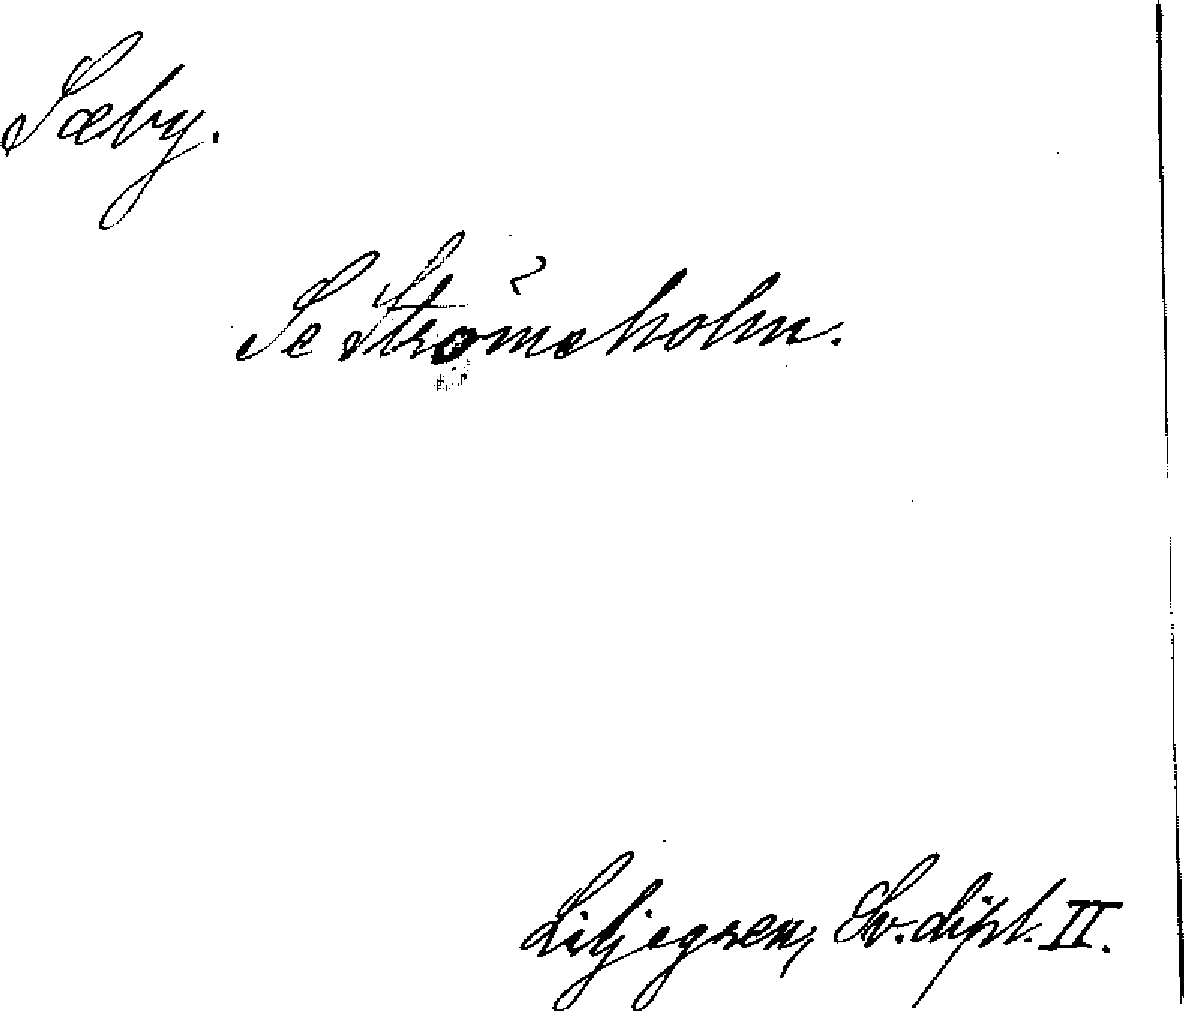 Sæby.
Se Strömsholm.
Liljegren, Sv. dipl. II.